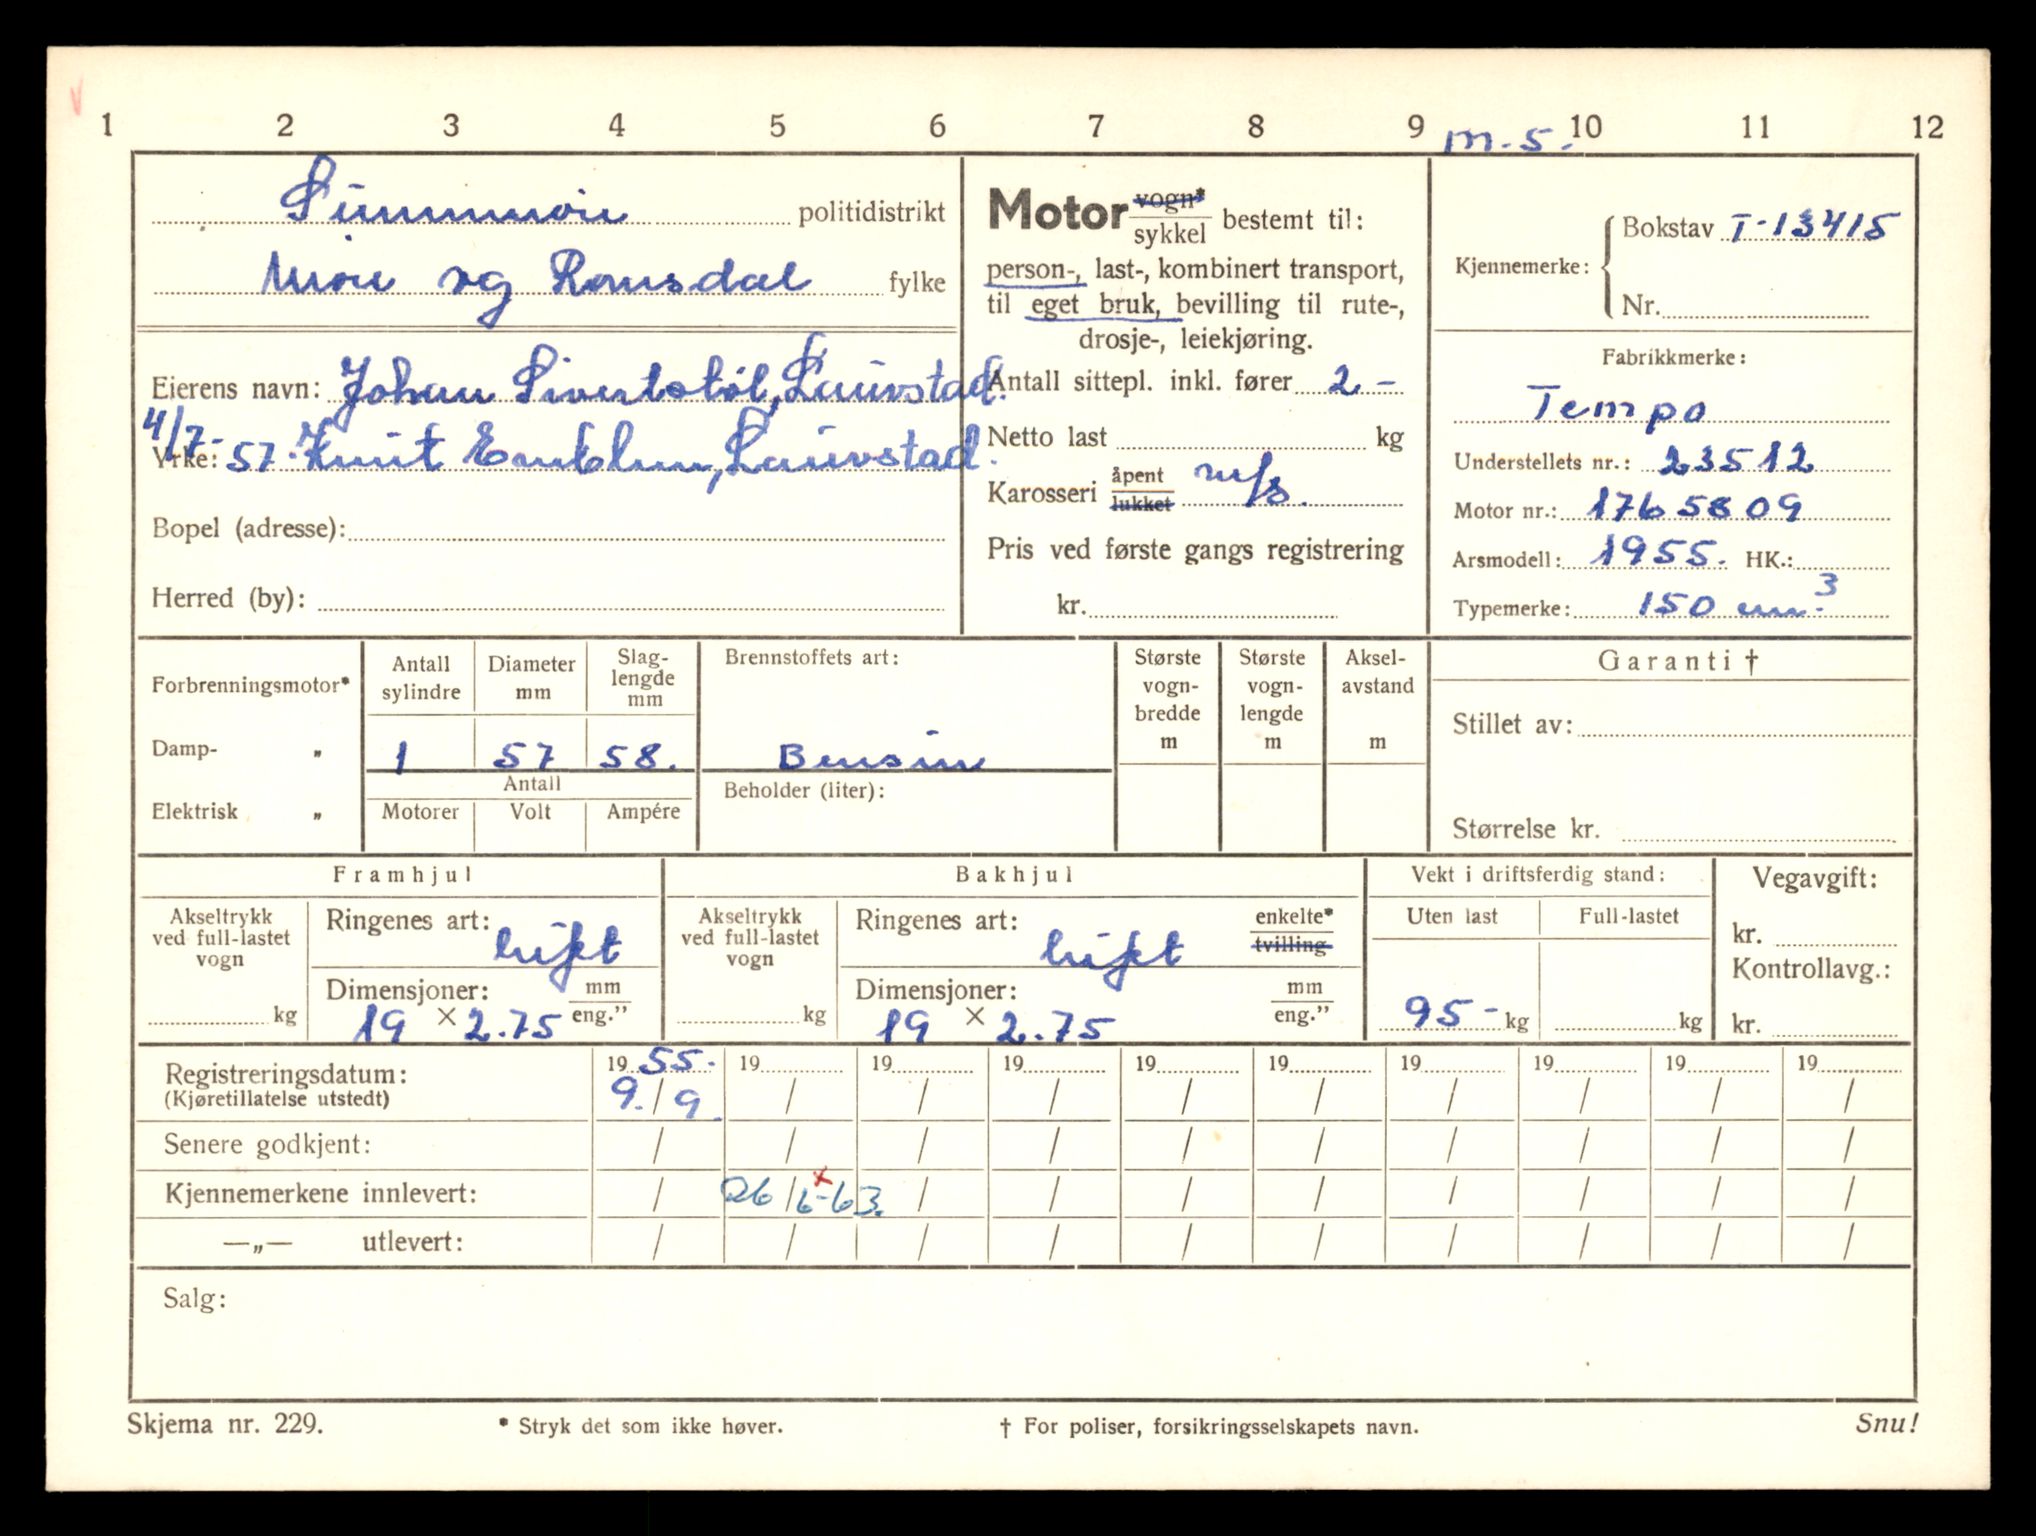 1 2 3 4 5 6 7 8 9 10 11 12
m.s.
Sunnmøre politidistrikt
Møre og Romsdal fylke
Eierens navn: Johan Sivertstøl, Lauvstad.
4/7-57. Knut Emblem, Lauvstad.
Yrke:
Bopel (adresse):
Herred (by):
Motor vogn* / sykkel bestemt til:
person-, last-, kombinert transport,
til eget bruk, bevilling til rute-,
drosje-, leiekjøring.
Antall sittepl. inkl. fører 2 -
Netto last kg
Karosseri åpent / lukket m/s.
Pris ved første gangs registrering
kr.
Kjennemerke: Bokstav T-13415
Nr.
Fabrikkmerke:
Tempo
Understellets nr.: 23512
Motor nr.: 1765809
Arsmodell: 1955. HK.:
Typemerke: 150 cm.3
Forbrenningsmotor*
Damp- „
Elektrisk „
Antall sylindre 1
Diameter mm 57
Slag-lengde mm 58.
Antall
Motorer Volt Ampére
Brennstoffets art:
Bensin
Beholder (liter):
Største vogn-bredde m
Største vogn-lengde m
Aksel-avstand m
Garanti †
Stillet av:
Størrelse kr.
Framhjul
Akseltrykk ved full-lastet vogn
kg
Ringenes art: luft
Dimensjoner: mm / eng.”
19 × 2.75
Bakhjul
Akseltrykk ved full-lastet vogn
kg
Ringenes art: luft enkelte* / tvilling
Dimensjoner: mm / eng.”
19 × 2.75
Vekt i driftsferdig stand:
Uten last Full-lastet
95 - kg kg
Vegavgift:
kr.
Kontrollavg.:
kr.
Registreringsdatum: 19 55. 19 19 19 19 19 19 19 19 19
(Kjøretillatelse utstedt) 9. / 9. / / / / / / / / /
Senere godkjent: / / / / / / / / / /
Kjennemerkene innlevert: / 26/6-63. x / / / / / / / /
—„— utlevert: / / / / / / / / / /
Salg:
Skjema nr. 229. * Stryk det som ikke høver. † For poliser, forsikringsselskapets navn. Snu!